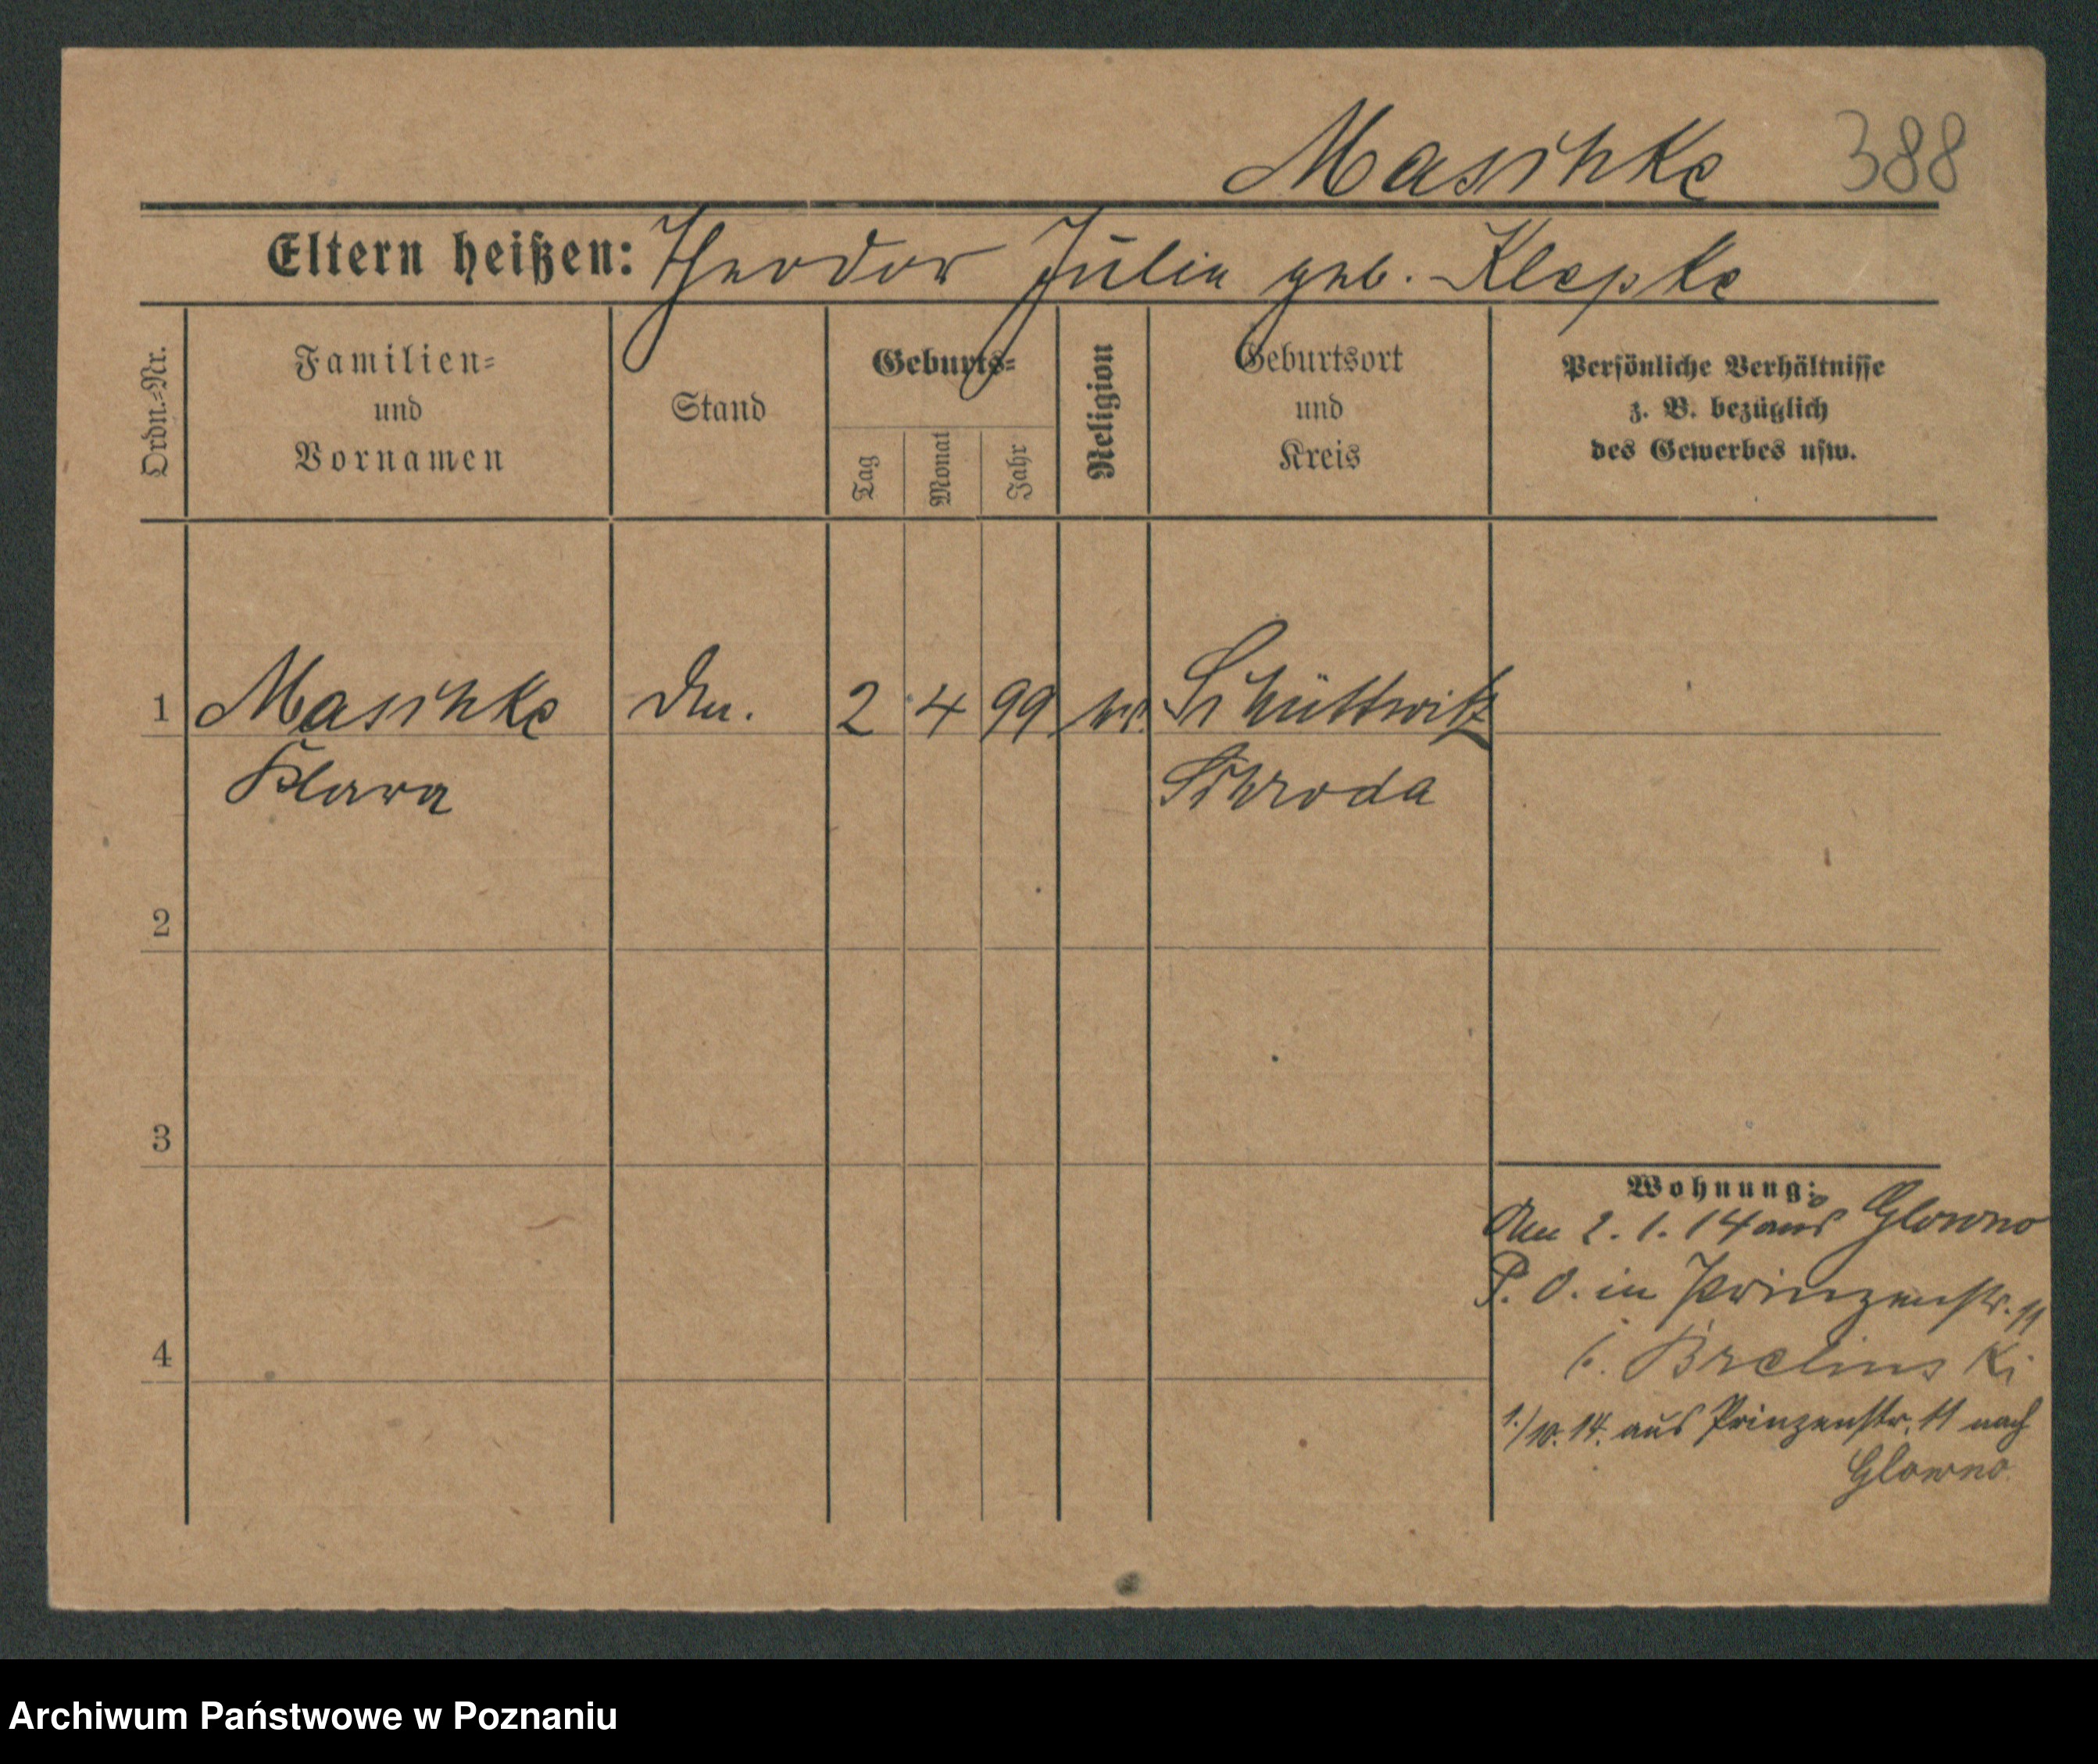 Maschke 388
Eltern heißen: Theodor Julia geb. Klepke
Ordn.-Nr.
Familien-
und
Vornamen
Stand
Geburts-
Tag
Monat
Jahr
Religion
Geburtsort
und
Kreis
Persönliche Verhältnisse
z. B. bezüglich
des Gewerbes usw.
1 Maschke 2 4 99 Schüttwitz
Klara Schroda
2
3
4
Wohnung:
2. 1. 14 aus Glowno
P. O. in Prinzenstr. 11
b. Brelinski
1./10. 14. aus Prinzenstr. 11 nach
Glowno.
Archiwum Państwowe w Poznaniu